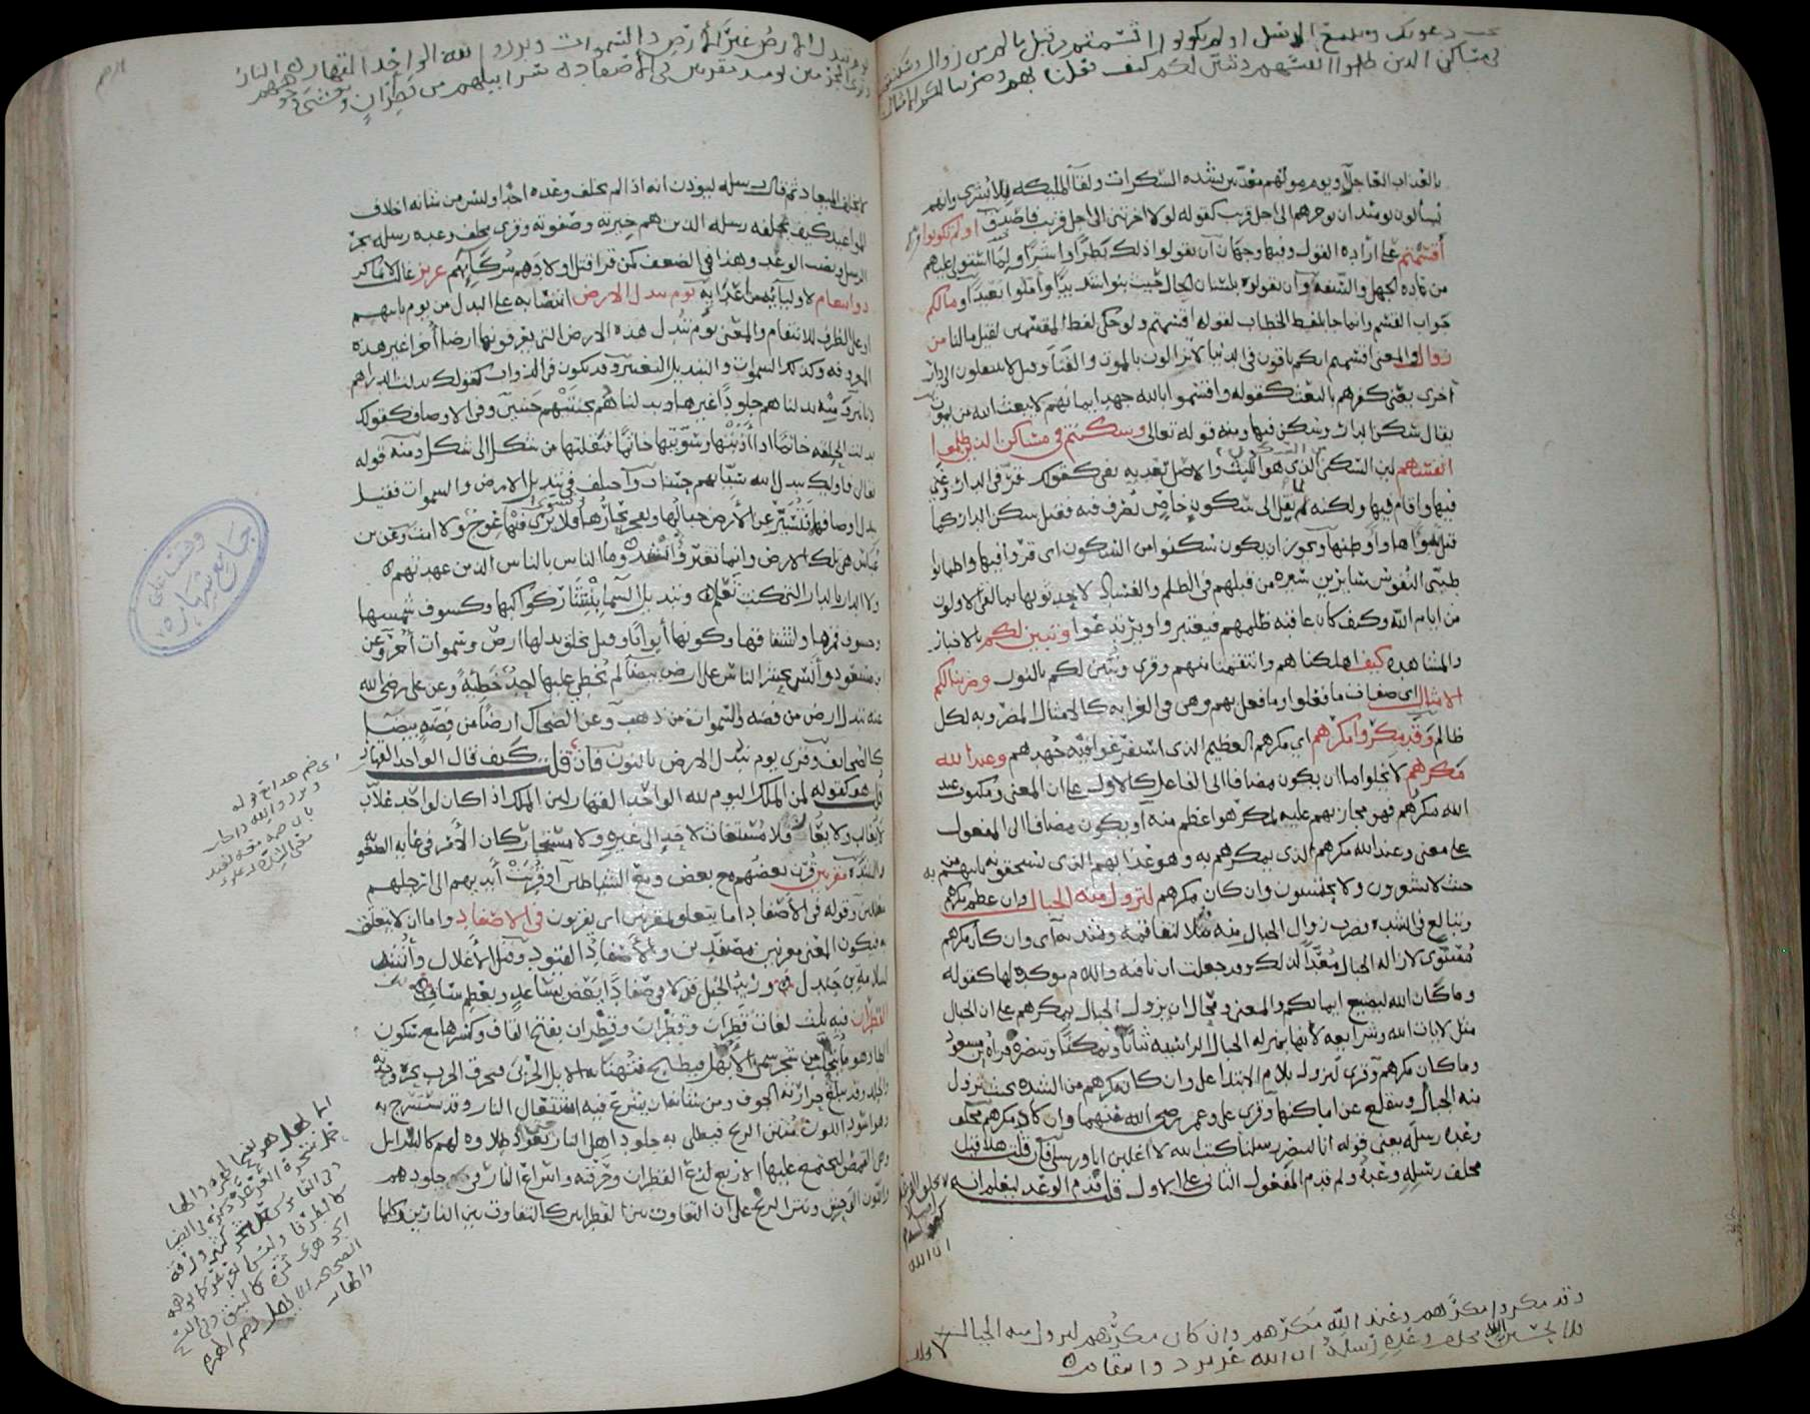 نجب دعوتك ونتبع الرسل اولم تكونوا اقسمتم من قبل ما لكم من زوال وسكنتم
في مساكن الذين ظلموا انفسهم وتبين لكم كيف فعلنا بهم وضربنا لكم الامثال
بالعذاب العاجل او يوم موتهم معذبين بشده السكرات ولقا الملىكه بلا بشرى وانهم
يسالون يومىذ ان يوخرهم الى اجل قريب كقوله لولا اخرتنى الى اجل قريب فاصدق اولم تكونوا
اقسمتم على اراده القول وفيه وجهان ان يقولوا ذلك بطرا واشرا ولما استولى عليهم
من عاده الجهل والسفه وان يقولوه بلسان الحال حيث بنوا شديدا واملوا بعيدا وما لكم
جواب القسم وانما جا بلفظ الخطاب لقوله اقسمتم ولو حكى لفظ المقسمين لقيل ما لنا من
زوال والمعنى اقسمتم انكم باقون فى الدنيا لا تزالون بالموت والفنا وقيل لا تنتقلون الى دار
اخرى يعنى كفرهم بالبعث كقوله واقسموا بالله جهد ايمانهم لا يبعث الله من يموت
يقال سكن الدار وسكن فيها ومنه قوله تعالى وسكنتم فى مساكن الذين ظلموا
انفسهم لان السكنى من السكون الذى هو اللبث والاصل تعديه بفى كقولك قر فى الدار وغنى
فيها واقام فيها ولكنه لما نقل الى سكون خاص تصرف فيه فقيل سكن الدار كما
قيل تبواها واوطنها ويجوز ان يكون سكنوا من السكون اى قروا فيها واطمانوا
طيبى النفوس سايرين سيره من قبلهم فى الظلم والفساد لا يحدثونها بما لقى الاولون
من ايام الله وكيف كان عاقبه ظلمهم فيعتبروا ويرتدعوا وتبين لكم بالاخبار
والمشاهده كيف اهلكناهم وانتقمنا منهم وقرى ونبين لكم بالنون وضربنا لكم
الامثال اى صفات ما فعلوا وما فعل بهم وهى فى الغرابه كالامثال المضروبه لكل
ظالم وقد مكروا مكرهم اى مكرهم العظيم الذى استفرغوا فيه جهدهم وعند الله
مكرهم لا يخلوا اما ان يكون مضافا الى الفاعل كالاول على ان المعنى ومكتوب عند
الله مكرهم فهو مجازيهم عليه بمكر هو اعظم منه او يكون مضافا الى المفعول
على معنى وعند الله مكرهم الذى يمكرهم به وهو عذابهم الذى يستحقونه ياتيهم به من
حيث لا يشعرون ولا يحتسبون وان كان مكرهم لتزول منه الجبال وان عظم مكرهم
وتبالغ فى الشده فضرب زوال الجبال منه مثلا لتفاقمه وشدته اى وان كان مكرهم
مستوى لازاله الجبال معدا لذلك وقد جعلت ان نافيه واللام موكده لها كقوله
وما كان الله ليضيع ايمانكم والمعنى ومحال ان تزول الجبال بمكرهم على ان الجبال
مثل لايات الله وشرايعه لانها بمنزله الجبال الراسيه ثباتا وتمكنا وتنصره قراه ابن مسعود
وما كان مكرهم وقرى لتزول بلام الابتدا على وان كان مكرهم من الشده بحيث تزول
منه الجبال وتنقلع عن اماكنها وقرى على وعمر رضى الله عنهما وان كاد مكرهم مخلف
وعده رسله يعنى قوله انا لننصر رسلنا كتب الله لاغلبن انا ورسلى فان قلت هلا قيل
مخلف رسله وعده ولم قدم المفعول الثانى على الاول قلت قدم الوعد ليعلم انه
وقد مكروا مكرهم وعند الله مكرهم وان كان مكرهم لتزول منه الجبال
فلا تحسبن الله مخلف وعده رسله ان الله عزيز ذو انتقام
يوم تبدل الارض غير الارض والسموات وبرزوا لله الواحد القهار
وترى المجرمين يومىذ مقرنين فى الاصفاد سرابيلهم من قطران وتغشى وجوههم النار
لا يخلف الميعاد ثم قال رسله ليوذن انه اذا لم يخلف وعده احدا وليس من شانه اخلاف
المواعيد كيف يخلفه رسله الذين هم خيرته وصفوته وقرى مخلف وعده رسله بجر
الرسل ونصب الوعد وهذا فى الضعف كمن قرا قتل اولادهم شركايهم عزيز غالب لا يماكر
ذو انتقام لاوليايه من اعدايه يوم تبدل الارض انتصابه على البدل من يوم ياتيهم
او على الظرف للانتقام والمعنى يوم تبدل هذه الارض التى تعرفونها ارضا اخرى غير هذه
المعروفه وكذلك السموات والتبديل التغيير وقد يكون فى الذوات كقولك بدلت الدراهم
دنانير ومنه بدلناهم جلودا غيرها وبدلناهم بجنتيهم جنتين وفى الاوصاف كقولك
بدلت الحلقه خاتما اذا اذبتها وسويتها خاتما فنقلتها من شكل الى شكل ومنه قوله
تعالى فاولىك يبدل الله سياتهم حسنات واختلف فى تبديل الارض والسموات فقيل
تبدل اوصافها فتسير عن الارض جبالها وتفجر بحارها وتسوى فلا يرى فيها عوج ولا امت وعن ابن
عباس هى تلك الارض وانما تغير وانشد وما الناس بالناس الذين عهدتهم
ولا الدار بالدار التى كنت تعلم وتبديل السما بانتثار كواكبها وكسوف شمسها
وخسوف قمرها وانشقاقها وكونها ابوابا وقيل يخلق بدلها ارض وسموات اخر وعن
ابن مسعود وانس يحشر الناس على ارض بيضا لم يخطى عليها احد خطيه وعن على رضى الله
عنه تبدل ارض من فضه والسموات من ذهب وعن الضحاك ارضا من فضه بيضا
كالصحايف وقرى يوم نبدل الارض بالنون فان قلت كيف قال الواحد القهار
قلت هو كقوله لمن الملك اليوم لله الواحد القهار لان الملك اذا كان لواحد غلاب
لا يغالب ولا يعاز فلا مستغاث لاحد الى غيره ولا مستجار كان الامر فى غايه الصعوبه
والشده مقرنين قرن بعضهم مع بعض او مع الشياطين او قرنت ايديهم الى ارجلهم
مغللين وقوله فى الاصفاد اما يتعلق بمقرنين اى يقرنون فى الاصفاد واما ان لا يتعلق
به فيكون المعنى مقرنين مصفدين والاصفاد القيود وقيل الاغلال وانشد
لسلامه بن جندل وزيد الخيل قد لاقى صفادا يعض بساعد وبعظم ساق
القطران فيه ثلث لغات قطران وقطران وقطران بفتح القاف وكسرها مع سكون
الطا وهو ما يتحلب من شجر يسمى الابهل فيطبخ فتهنا به الابل الجربى فيحرق الجرب بحره وحدته
والجلد وقد تبلغ حرارته الجوف ومن شانه ان يسرع فيه اشتعال النار وقد يستسرج به
وهو اسود اللون منتن الريح فيطلى به جلود اهل النار حتى يعود طلاوه لهم كالسرابيل
وهى القمص لتجتمع عليهم الاربع لذع القطران وحرقته واسراع النار فى جلودهم
واللون الوحش ونتن الريح على ان التفاوت بين القطرانين كالتفاوت بين النارين وكلما
وقف على
جامع شهاره